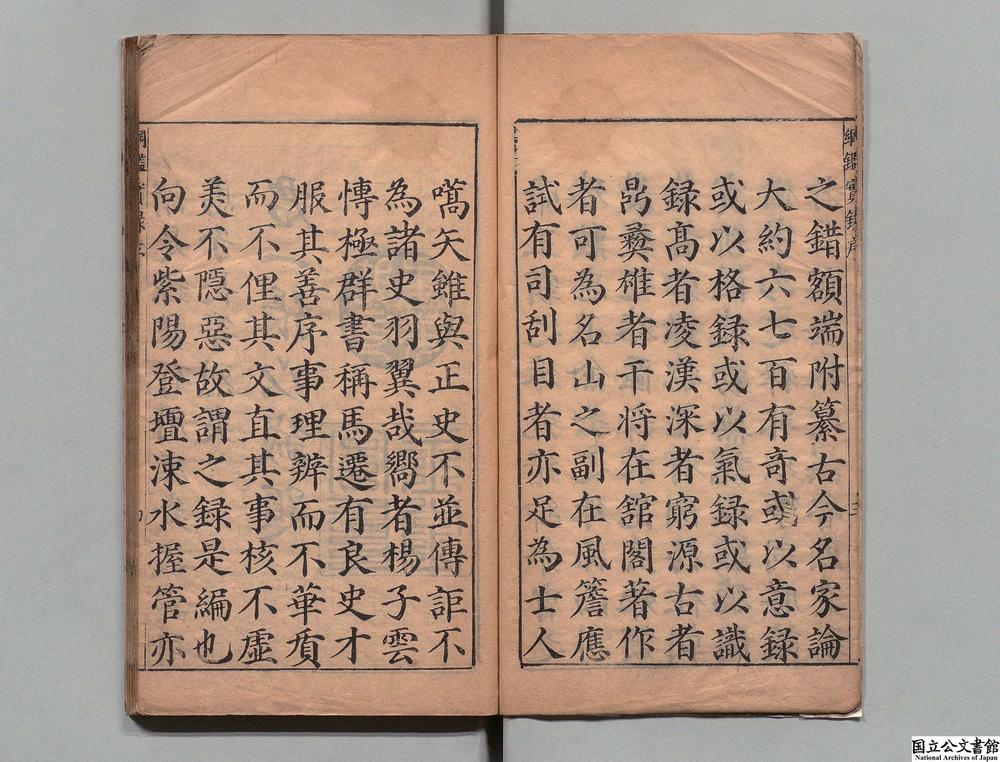 綱鑑實錄序
之錯額端附纂古今名家論
大約六七百有奇或以意録
或以格録或以氣録或以識
録髙者凌漢深者窮源古者
鼎彝椎者干将在舘閣著作
者可為名山之副在風簷應
試有司刮目者亦足為士人
嚆矢雖與正史不並傳詎不
為諸史羽翼哉嚮者楊子雲
愽極群書稱馬遷有良史才
服其善序事理辨而不華質
而不俚其文直其事核不虛
美不隱惡故謂之録是編也
向令紫陽登壇涑水握管亦
国立公文書館
National Archives of Japan